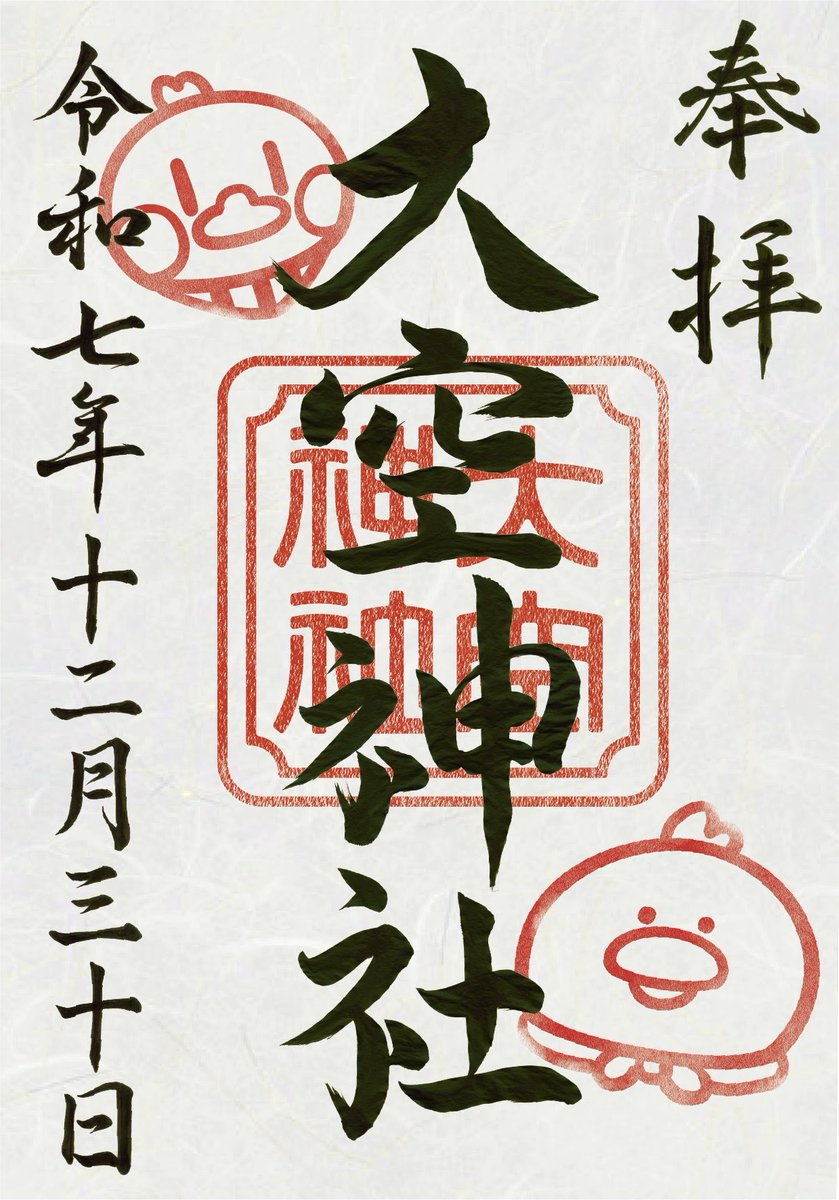 奉拝
大空神社
大空神社
令和七年十二月三十日